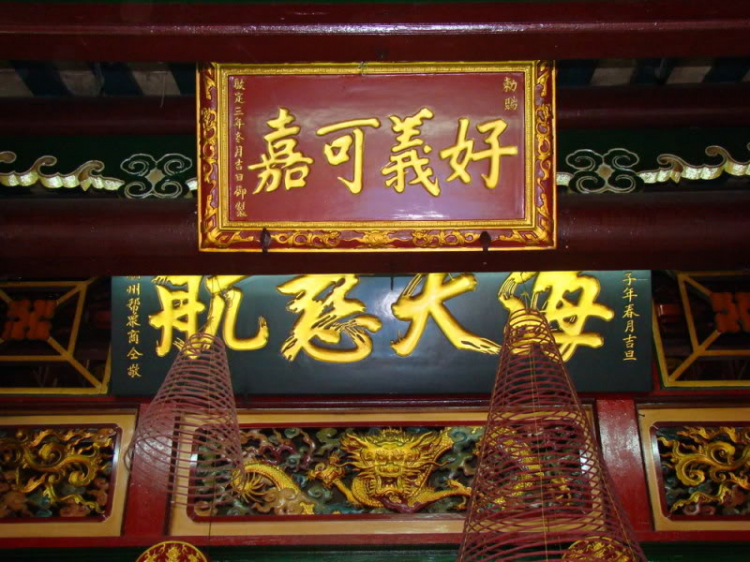 勅賜
好義可嘉
啟定三年冬月吉日御製
子年春月吉旦
海天慈航
州幫眾商仝敬